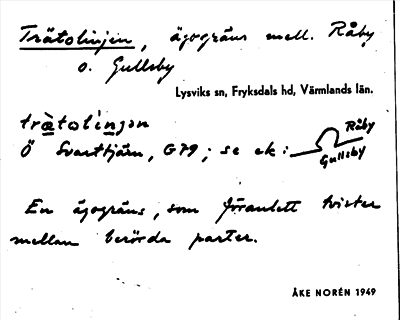 Trätolinjen, ägogräns mell. Råby
o. Gullsby
Lysviks sn, Fryksdals hd, Värmlands län.
trä̀tolinjən
Ö Svarttjärn, G79; se ek: Råby
Gullsby
En ägogräns, som föranlett tvister
mellan berörda parter.
ÅKE NORÉN 1949